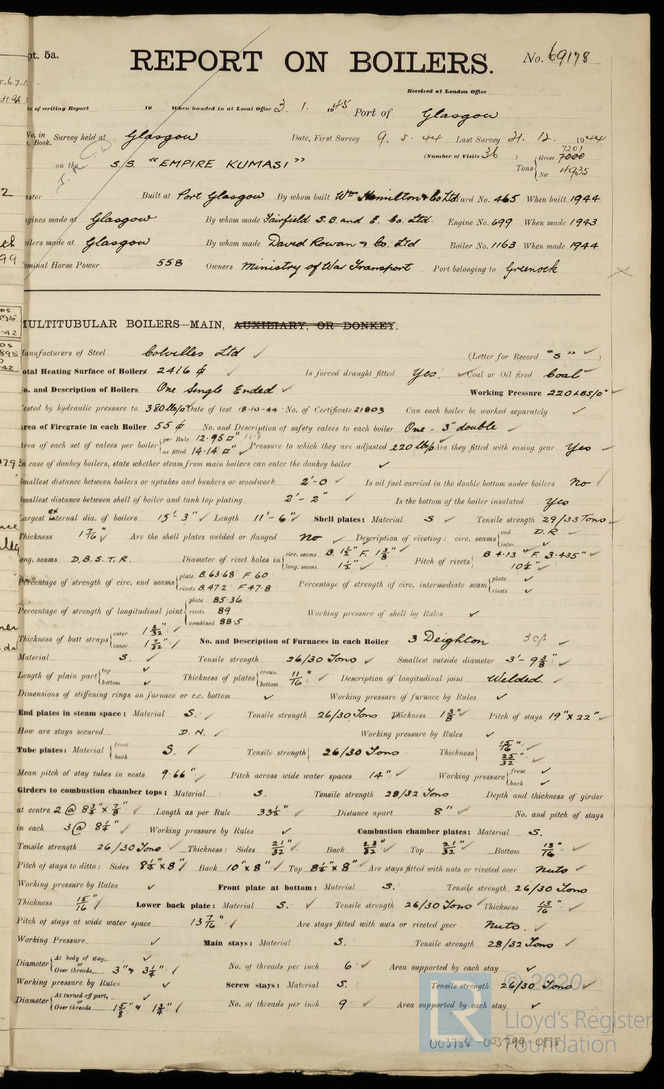 pt. 5a.
REPORT ON BOILERS.
No. 69178
Received at London Office
of writing Report 19 When handed in at Local Office 3. 1. 1945 Port of Glasgow
No. in Book. Survey held at Glasgow Date, First Survey 9. 5. 44 Last Survey 21. 12. 1944
on the S.S. "EMPIRE KUMASI" (Number of Visits 36) Tons Gross 7201 7000 Net 4935
Built at Port Glasgow By whom built Wm Hamilton & Co Ltd Yard No. 465 When built 1944
Engines made at Glasgow By whom made Fairfield S.B. and E. Co. Ltd Engine No. 699 When made 1943
Boilers made at Glasgow By whom made David Rowan & Co. Ltd Boiler No. 1163 When made 1944
Nominal Horse Power 558 Owners Ministry of War Transport Port belonging to Greenock
MULTITUBULAR BOILERS—MAIN, AUXILIARY, OR DONKEY.
Manufacturers of Steel Colvilles Ltd ✓ (Letter for Record "S" ✓)
Total Heating Surface of Boilers 2416 ⏀ Is forced draught fitted Yes. ✓ Coal or Oil fired Coal ✓
No. and Description of Boilers One Single Ended ✓ Working Pressure 220 LBS/□" ✓
Tested by hydraulic pressure to 380 lb/□" Date of test 18-10-44 No. of Certificate 21803 Can each boiler be worked separately ✓
Area of Firegrate in each Boiler 55 ⏀ No. and Description of safety valves to each boiler One - 3" double ✓
Area of each set of valves per boiler per Rule 12.95 □" as fitted 14.14 □" ✓ Pressure to which they are adjusted 220 lb/□" Are they fitted with easing gear Yes ✓
In case of donkey boilers, state whether steam from main boilers can enter the donkey boiler ✓
Smallest distance between boilers or uptakes and bunkers or woodwork 2'-0 ✓ Is oil fuel carried in the double bottom under boilers No ✓
Smallest distance between shell of boiler and tank top plating 2'-2" ✓ Is the bottom of the boiler insulated Yes
Largest external dia. of boilers 15'-3" ✓ Length 11'-6" ✓ Shell plates: Material S ✓ Tensile strength 29/33 Tons ✓
Thickness 1 7/16" ✓ Are the shell plates welded or flanged No ✓ Description of riveting: circ. seams end D.R. ✓ inter. ✓
long. seams D.B.S.T.R. Diameter of rivet holes in circ. seams B 1½" F. 1⅜" ✓ long. seams 1½" ✓ Pitch of rivets B 4.13" F 3.435" ✓ 10⅛" ✓
Percentage of strength of circ. end seams plate B 63.68 F 60 rivets B 47.2 F 47.8 Percentage of strength of circ. intermediate seam plate ✓ rivets ✓
Percentage of strength of longitudinal joint plate 85.36 rivets 89 combined 88.5 Working pressure of shell by Rules ✓
Thickness of butt straps outer 1 3/32" inner 1 7/32" ✓ No. and Description of Furnaces in each Boiler 3 Deighton ✓
Material S. ✓ Tensile strength 26/30 Tons ✓ Smallest outside diameter 3'-9⅜" ✓
Length of plain part top ✓ bottom ✓ Thickness of plates crown bottom 11/16" ✓ Description of longitudinal joint Welded. ✓
Dimensions of stiffening rings on furnace or c.c. bottom ✓ Working pressure of furnace by Rules ✓
End plates in steam space: Material S. ✓ Tensile strength 26/30 Tons Thickness 1⅜" ✓ Pitch of stays 19" X 22" ✓
How are stays secured D.N. ✓ Working pressure by Rules ✓
Tube plates: Material front back S. ✓ Tensile strength 26/30 Tons Thickness 15/16" 25/32" ✓
Mean pitch of stay tubes in nests 9.66" ✓ Pitch across wide water spaces 14" ✓ Working pressure front ✓ back ✓
Girders to combustion chamber tops: Material S. Tensile strength 28/32 Tons Depth and thickness of girder
at centre 2 @ 8¾" X ⅞" ✓ Length as per Rule 33½" ✓ Distance apart 8" ✓ No. and pitch of stays
in each 3 @ 8¼" ✓ Working pressure by Rules ✓ Combustion chamber plates: Material S.
Tensile strength 26/30 Tons ✓ Thickness: Sides 21/32" ✓ Back 23/32" ✓ Top 21/32" ✓ Bottom 13/16" ✓
Pitch of stays to ditto: Sides 8¼" X 8" ✓ Back 10" X 8" ✓ Top 8¼" X 8" ✓ Are stays fitted with nuts or riveted over Nuts ✓
Working pressure by Rules ✓ Front plate at bottom: Material S. Tensile strength 26/30 Tons
Thickness 15/16" ✓ Lower back plate: Material S. ✓ Tensile strength 26/30 Tons ✓ Thickness 13/16" ✓
Pitch of stays at wide water space 13 7/16" ✓ Are stays fitted with nuts or riveted over Nuts. ✓
Working Pressure ✓ Main stays: Material S. Tensile strength 28/32 Tons ✓
Diameter At body of stay, or Over threads 3" & 3¼" ✓ No. of threads per inch 6 ✓ Area supported by each stay ✓
Working pressure by Rules ✓ Screw stays: Material S. Tensile strength 26/30 Tons ✓
Diameter At turned off part, or Over threads 1⅝" & 1¾" ✓ No. of threads per inch 9 ✓ Area supported by each stay ✓
© 2020
LR
Lloyd's Register
Foundation
003788-003799-0175